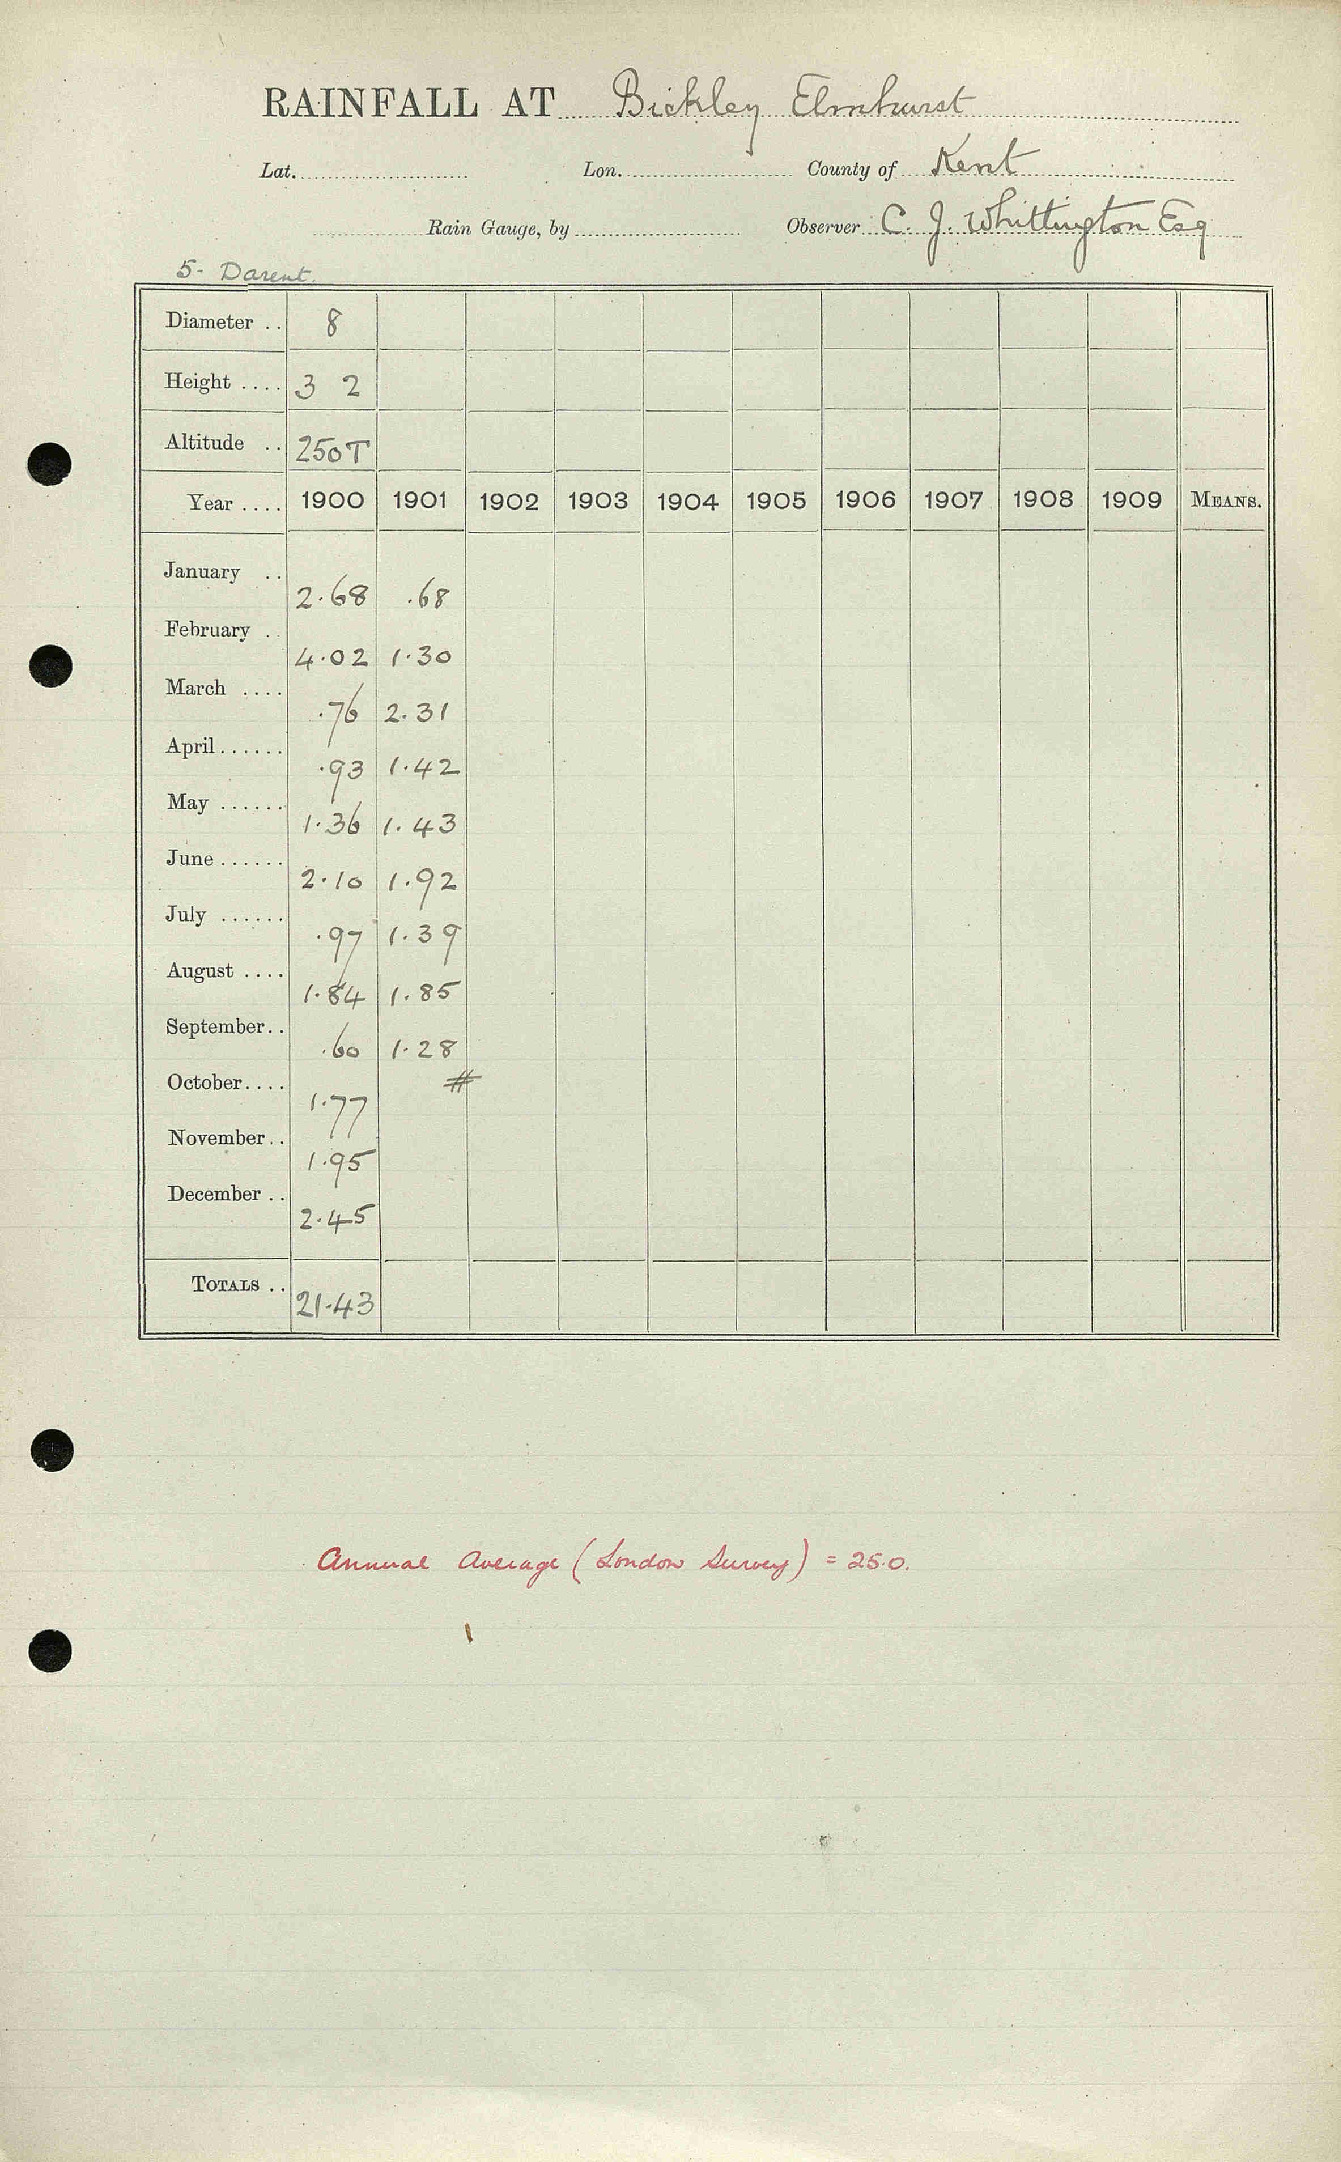 RAINFALL AT Bickley Elmhurst
Lat. Lon. County of Kent
Rain Gauge, by Observer C. J. Whittington Esq
5- Darent.
Diameter .. 8
Height .... 3 2
Altitude .. 250T
Year .... 1900 1901 1902 1903 1904 1905 1906 1907 1908 1909 MEANS.
January .. 2.68 .68
February .. 4.02 1.30
March .... .76 2.31
April ...... .93 1.42
May ...... 1.36 1.43
June ...... 2.10 1.92
July ...... .97 1.39
August .... 1.84 1.85
September.. .60 1.28
October.... 1.77 #
November.. 1.95
December .. 2.45
TOTALS .. 21.43
Annual Average (London Survey) = 25.0.